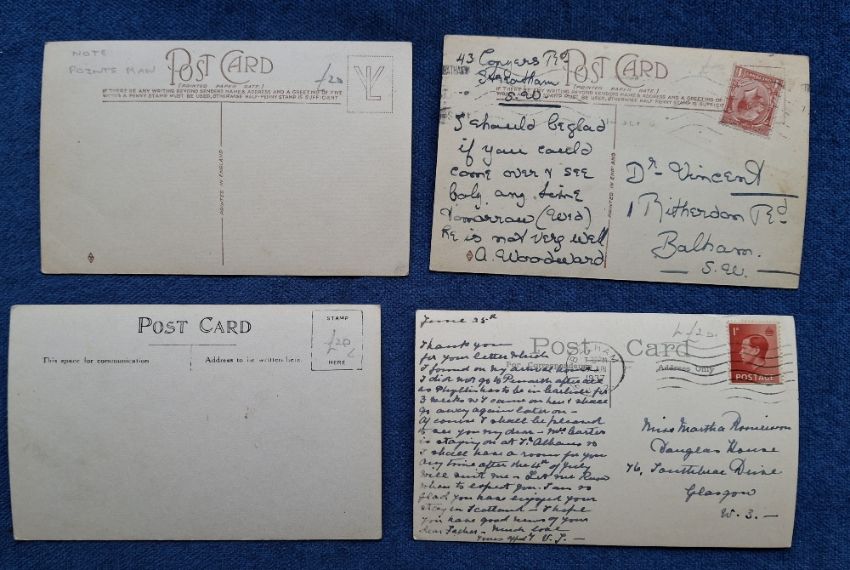 NOTE
POINTS MAN
POST CARD
£20
(PRINTED PAPER RATE.)
IF THERE BE ANY WRITING BEYOND SENDERS NAME & ADDRESS AND A GREETING OF FIVE
WORDS A PENNY STAMP MUST BE USED, OTHERWISE HALF-PENNY STAMP IS SUFFICIENT
PRINTED IN ENGLAND
43 Conyers Rd
Streatham
S.W.
POST CARD
(PRINTED PAPER RATE.)
IF THERE BE ANY WRITING BEYOND SENDERS NAME & ADDRESS AND A GREETING OF
I should be glad
if you could
come over & see
baby any time
tomorrow (Wed)
He is not very well
A. Woodward
PRINTED IN ENGLAND
Dr. Vincent
1 Ritherdon Rd
Balham.
S.W.
POST CARD
This space for communication
Address to be written here.
STAMP
£20
HERE
June 25th
Post Card
Address Only
1937
1D
POSTAGE
Thank you
for your letter which
I found on my arrival
I did not go to after all
as Phyllis has to be in Carlisle for
3 weeks so I came on here & shall
go away again later on –
Of course I shall be pleased
to see you my dear – Mrs Carter
is staying on at St Albans so
I shall have a room for you
Any time after the 4th of July
will suit me – Let me know
when to expect you. I am so
glad you have enjoyed your
stay in Scotland – I hope
you have good news of your
dear Father – Much love
V. J. –
Miss Martha
Douglas House
76,
Glasgow
W. 3. –